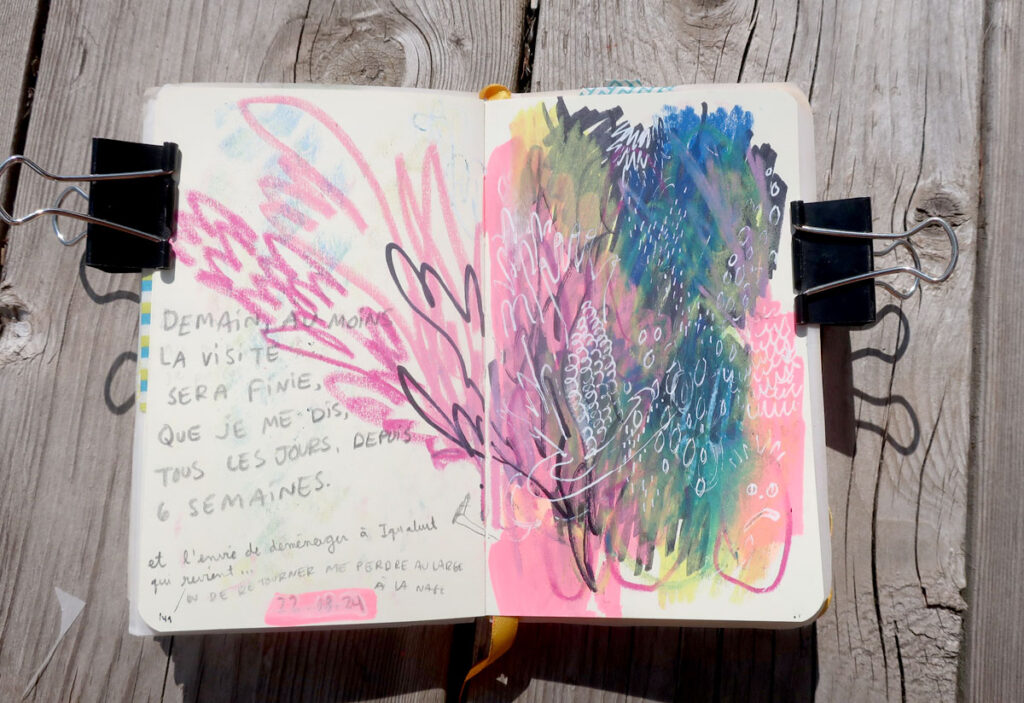 DEMAIN, AU MOINS
LA VISITE
SERA FINIE,
QUE JE ME DIS,
TOUS LES JOURS, DEPUIS
6 SEMAINES.
et l'envie de déménager à Iqaluit
qui revient...
OU DE RETOURNER ME PERDRE AU LARGE
À LA NAGE
22.08.24